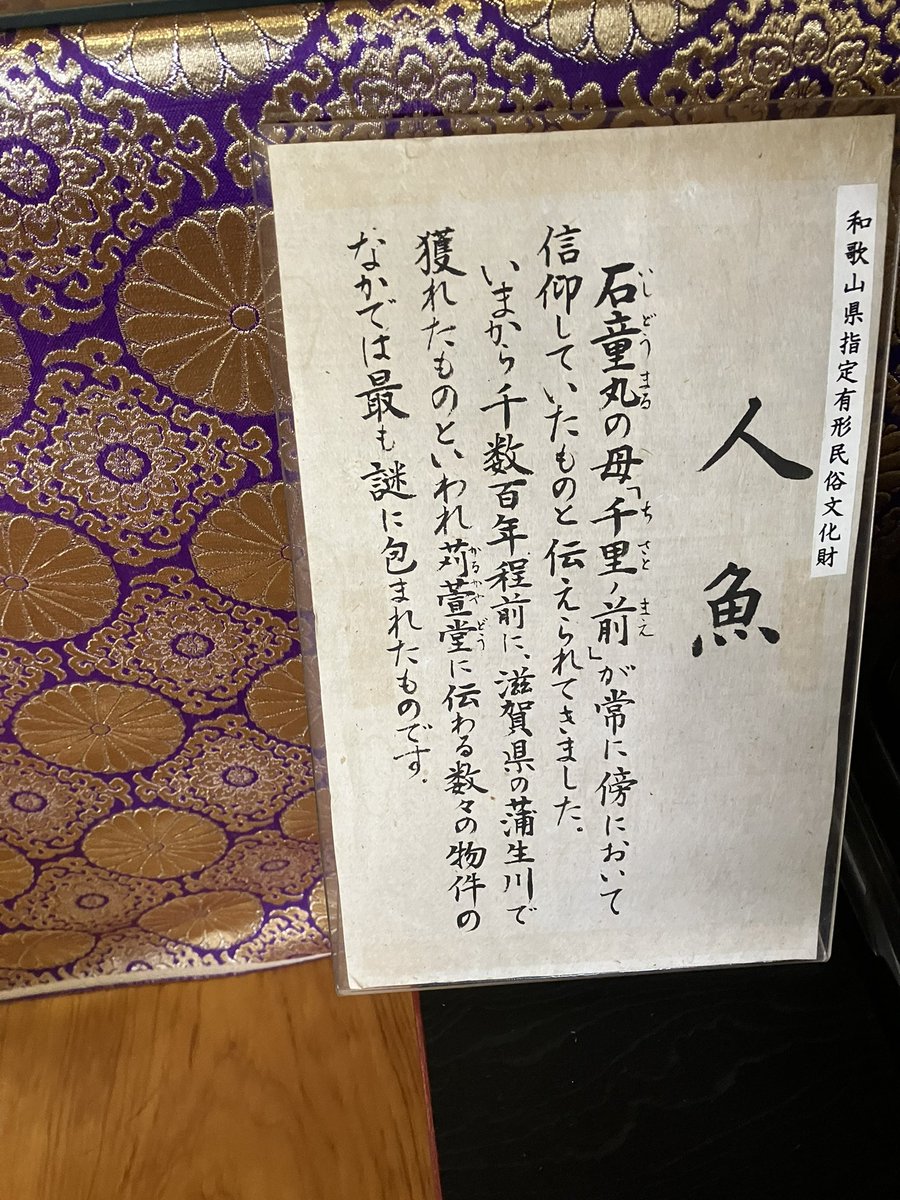 和歌山県指定有形民俗文化財
人魚
石童丸の母「千里ノ前」が常に傍において
いしどうまる
ちさと まえ
信仰していたものと伝えられてきました。
いまから千数百年程前に、滋賀県の蒲生川で
獲れたものといわれ苅萱堂に伝わる数々の物件の
かるかやどう
なかでは最も謎に包まれたものです.